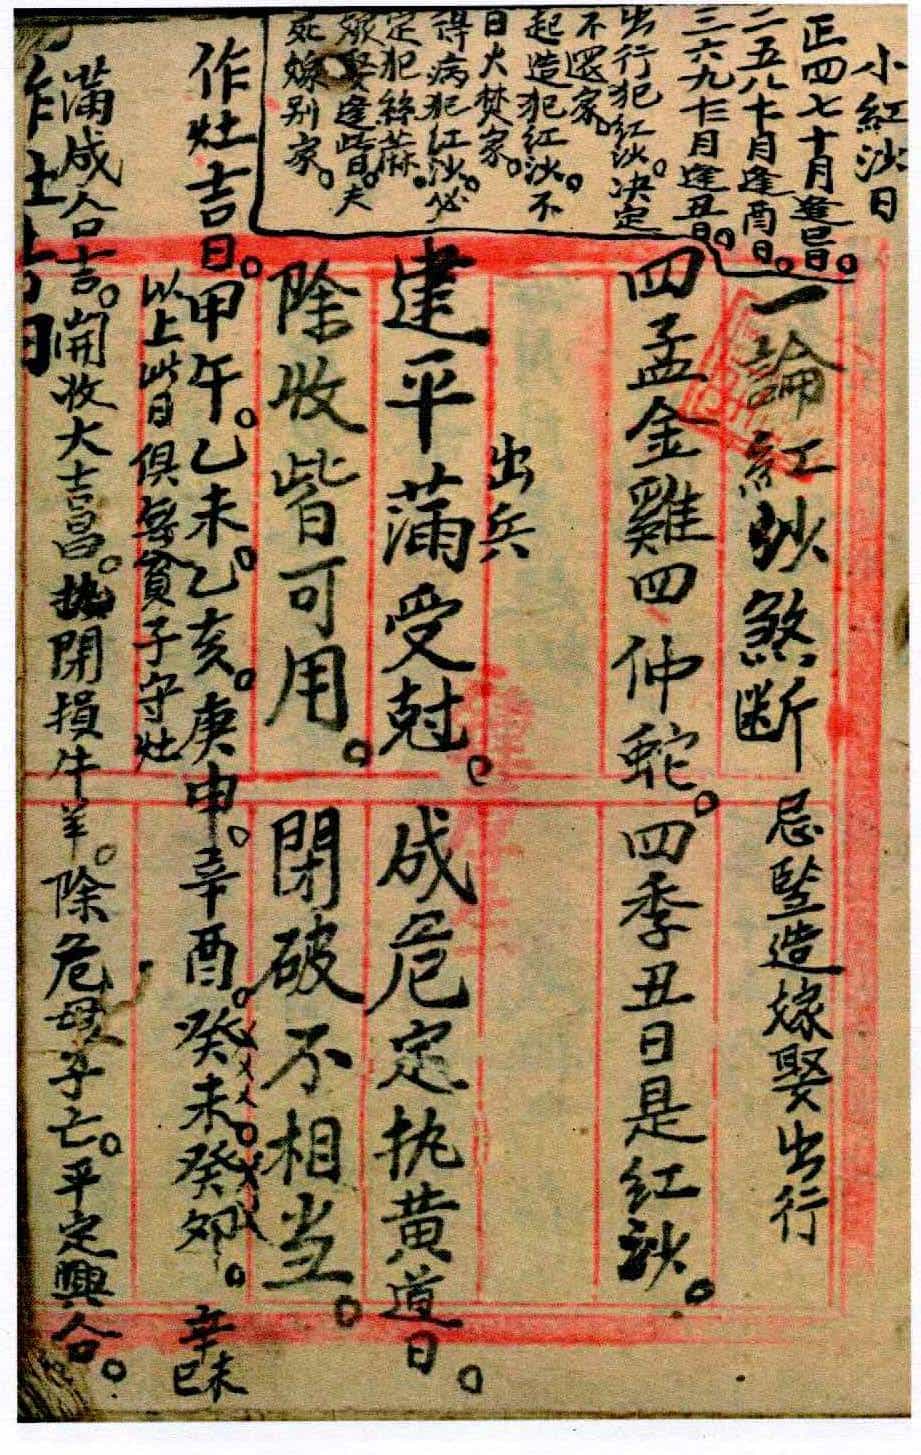 小紅沙日
正四七十月逢巳日。
二五八十一月逢酉日。
三六九十二月逢丑日。
出行犯紅沙。决定
不還家。
起造犯紅沙。不
日火焚家。
得病犯紅沙。必
定犯絲蔴。
嫁娶逢此日。夫
死嫁别家。
一論紅沙煞断 忌竪造嫁娶出行
四孟金雞四仲蛇。四季丑日是紅沙。
出兵
建平滿受尅。成危定执黄道日。
除收皆可用。閉破不相当。
作灶吉日。甲午。乙未。乙亥。庚申。辛酉。癸未。癸卯。辛未巳
以上此日俱無貧子守灶
滿成合吉。開收大吉昌。执閉損牛羊。除危母子亡。平定興合。
作灶